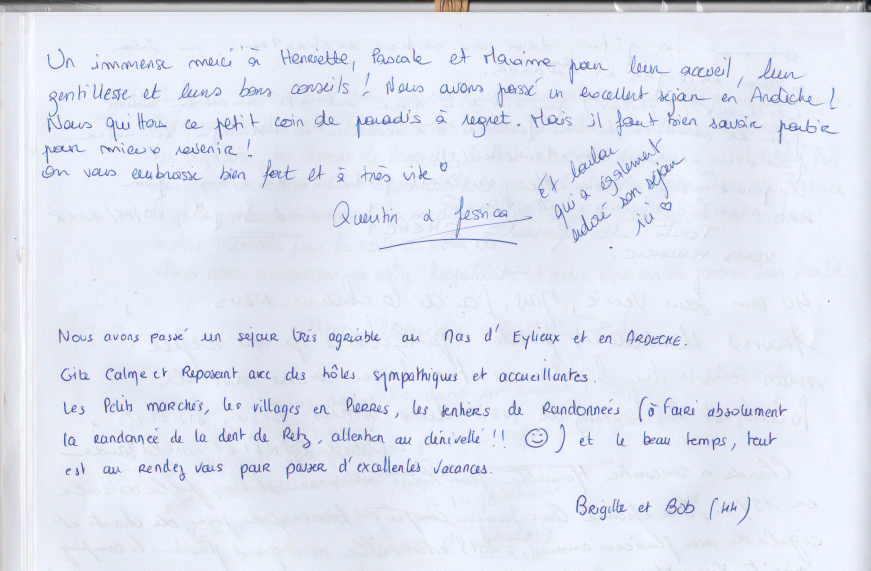 Un immense merci à Henriette, Pascale et Maxime pour leur accueil, leur
gentillesse et leurs bons conseils ! Nous avons passé un excellent séjour en Ardèche !
Nous quittons ce petit coin de paradis à regret. Mais il faut bien savoir partir
pour mieux revenir !
On vous embrasse bien fort et à très vite ♡
Quentin & Jessica
Et Loulou
qui a également
adoré son séjour
ici ♡
Nous avons passé un séjour très agréable au Mas d'Eylieux et en ARDECHE.
Gite Calme et Reposant avec des hôtes sympathiques et accueillantes.
Les Petits marchés, les villages en Pierres, les sentiers de Randonnées (à faire absolument
la randonnée de la dent de Retz, attention au dénivellé !! ☺) et le beau temps, tout
est au rendez vous pour passer d'excellentes vacances.
Brigitte et Bob (44)